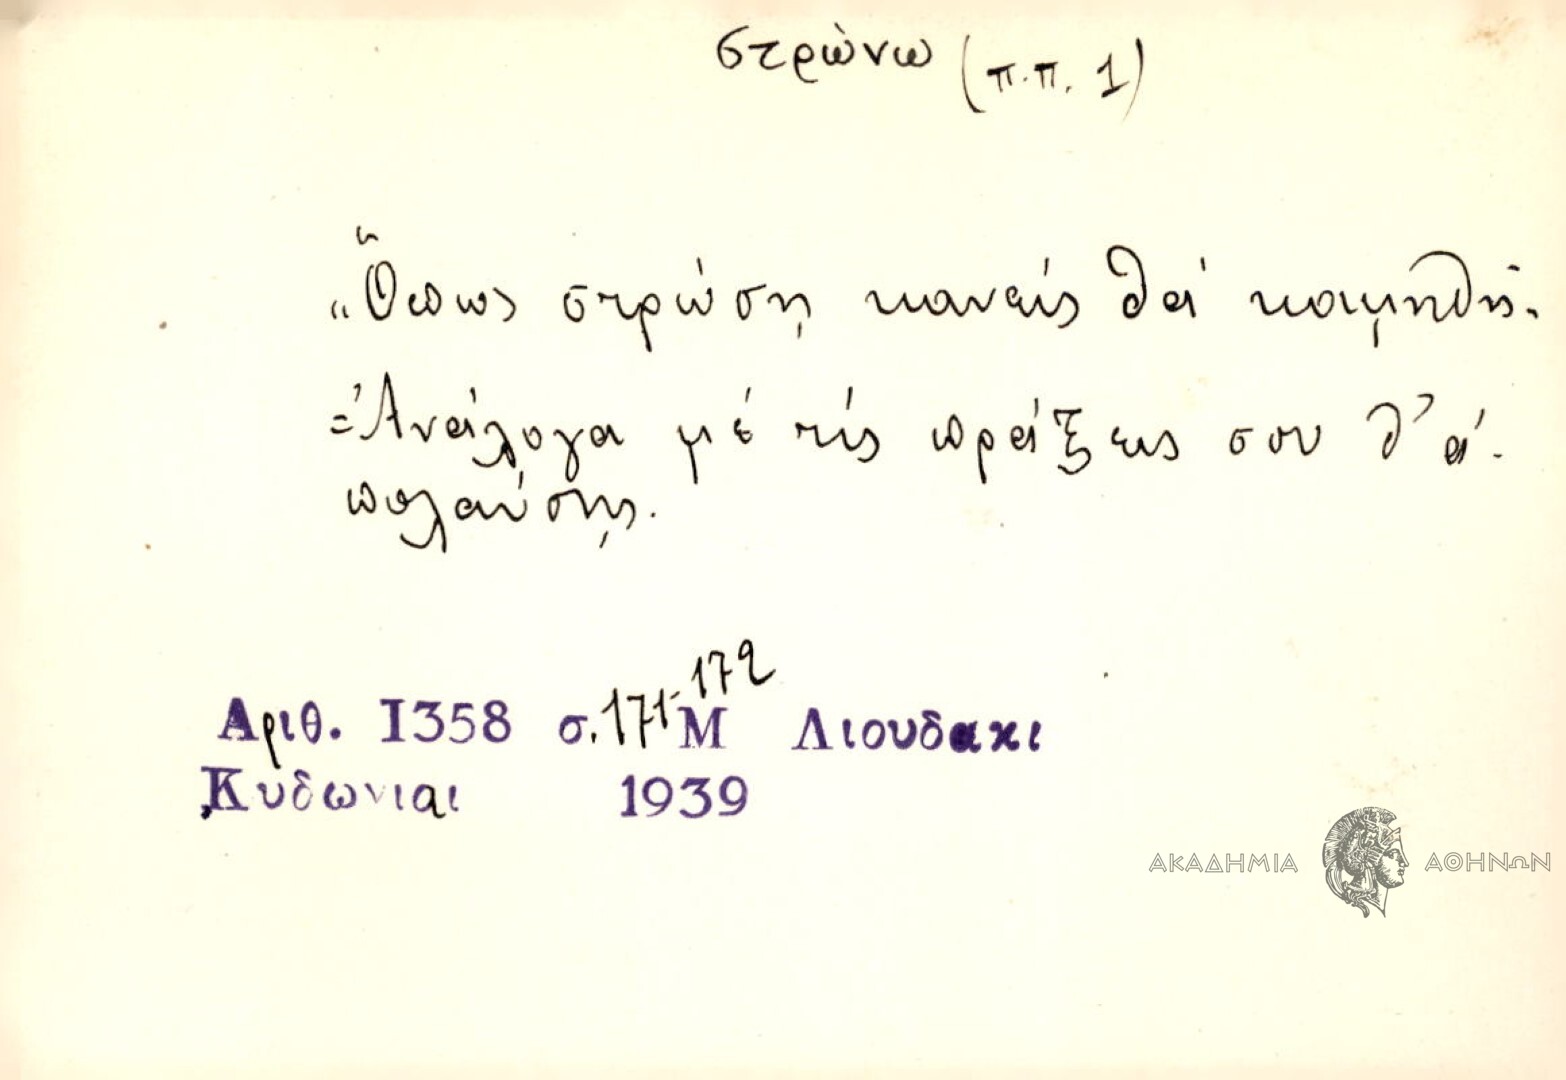 στρώνω (π.π. 1)
"Όπως στρώση κανείς θά κοιμηθῆ.
=Ἀνάλογα μέ τίς πράξεις σου θ' ἀ-
πολαύσης.
Αριθ. 1358 σ. 171-172 Μ Λιουδακι
Κυδωνιαι 1939
ΑΚΑΔΗΜΙΑ ΑΘΗΝΩΝ